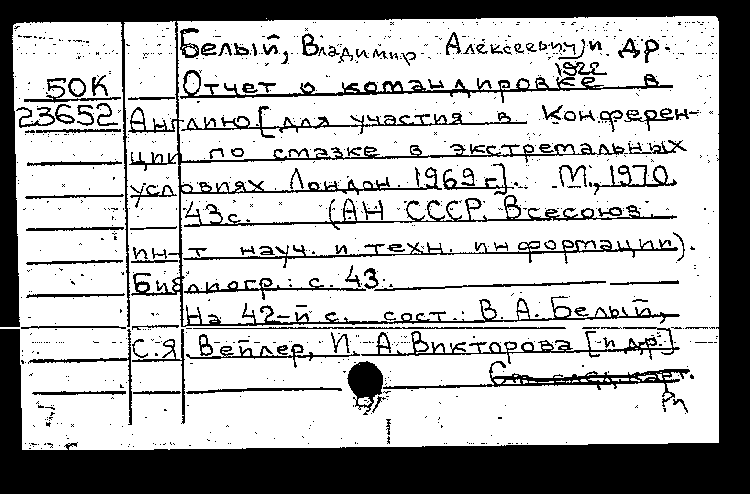 Белый, Владимир Алексеевич и др.
1922
50К Отчет о командировке в
23652 Англию [для участия в Конферен-
ции по смазке в экстремальных
условиях Лондон 1969 г.]. М., 1970.
43с. (АН СССР. Всесоюз.
ин-т науч. и техн. информации).
Библиогр.: с. 43.
На 42-й с. сост.: В. А. Белый,
С.Я. Вейлер, И. А. Викторова [и др.]
См. след. карт.